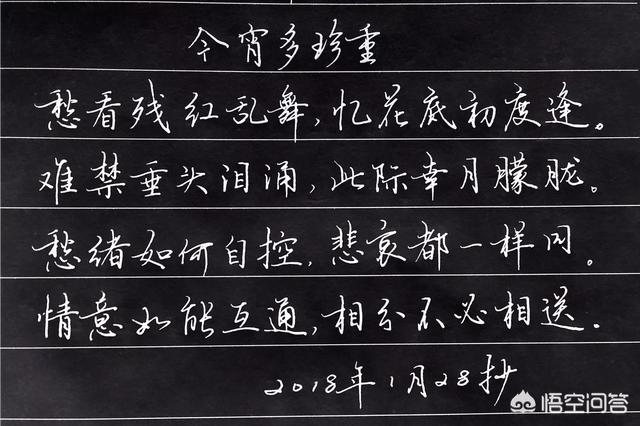 今宵多珍重
愁看残红乱舞,忆花底初度逢。
难禁垂头泪涌,此际幸月朦胧。
愁绪如何自控,悲哀都一样同。
情意如能互通,相分不必相送.
2018年1月28抄
悟空问答